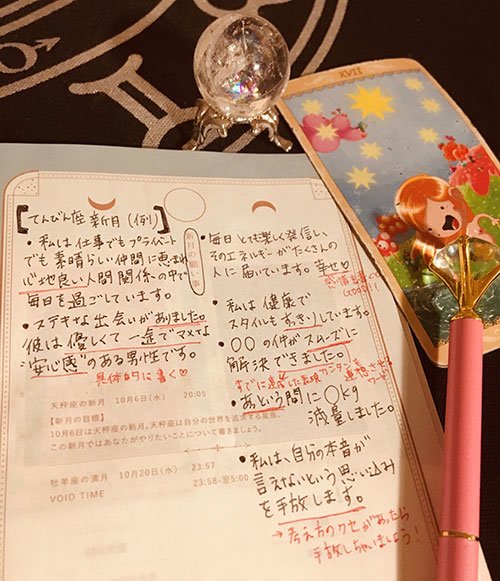 XVII
【てんびん座新月(例)】
・私は仕事でもプライベート
でも素晴らしい仲間に恵まれ
心地良い人間関係の中で
毎日を過ごしています。
・ステキな出会いがありました。
彼は優しくて一途でマメな
"安心感"のある男性です。
具体的に書く♡
新月の願い事
天秤座の新月 10月6日(水) 20:05
【新月の目標】
10月6日は天秤座の新月。天秤座は自分の世界を追求する星座。
この新月ではあなたがやりたいことについて書きましょう。
牡羊座の満月 10月20日(水) 23:57
VOID TIME 23:58-翌5:00
・毎日とても楽しく発信し、
そのエネルギーがたくさんの
人に届いています。幸せ♡
感情も書くと
GOOD!!
・私は健康で
スタイルもすっきりしています。
・〇〇の件がスムーズに
解決できました。
すでに達成した表現
カンタンを連想させるワード
・あっという間に〇kg
減量しました。
・私は、自分の本音が
言えないという思い込み
を手放します。
→考え方のクセがあったら
手放しちゃいましょう!